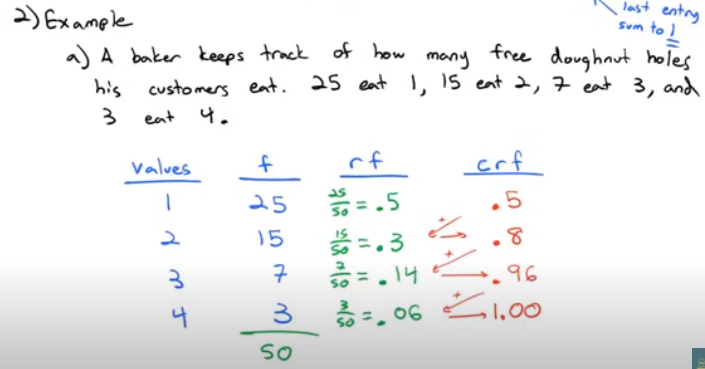 last entry
sum to 1
2) Example
a) A baker keeps track of how many free doughnut holes
his customers eat. 25 eat 1, 15 eat 2, 7 eat 3, and
3 eat 4.
values f rf crf
1 25 25/50 = .5 .5
2 15 15/50 = .3 + .8
3 7 7/50 = .14 + .96
4 3 3/50 = .06 + 1.00
50